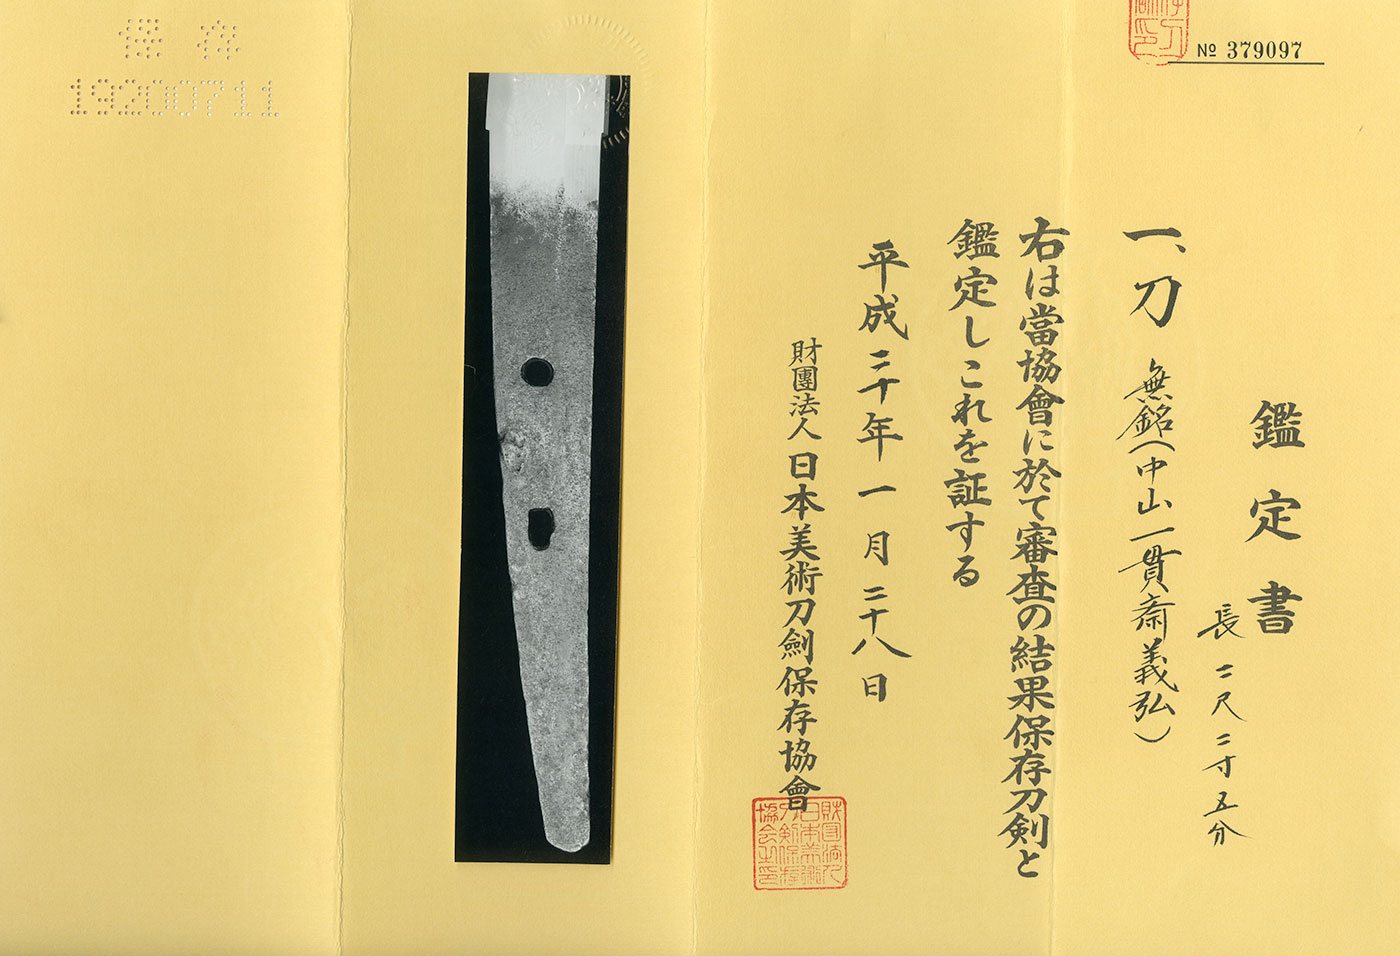 № 379097
鑑定書
長二尺二寸五分
一、刀 無銘(中山一貫斎義弘)
右は當協會に於て審査の結果保存刀剣と
鑑定しこれを証する
平成二十年一月二十八日
財團法人日本美術刀劍保存協會
保存
19200711